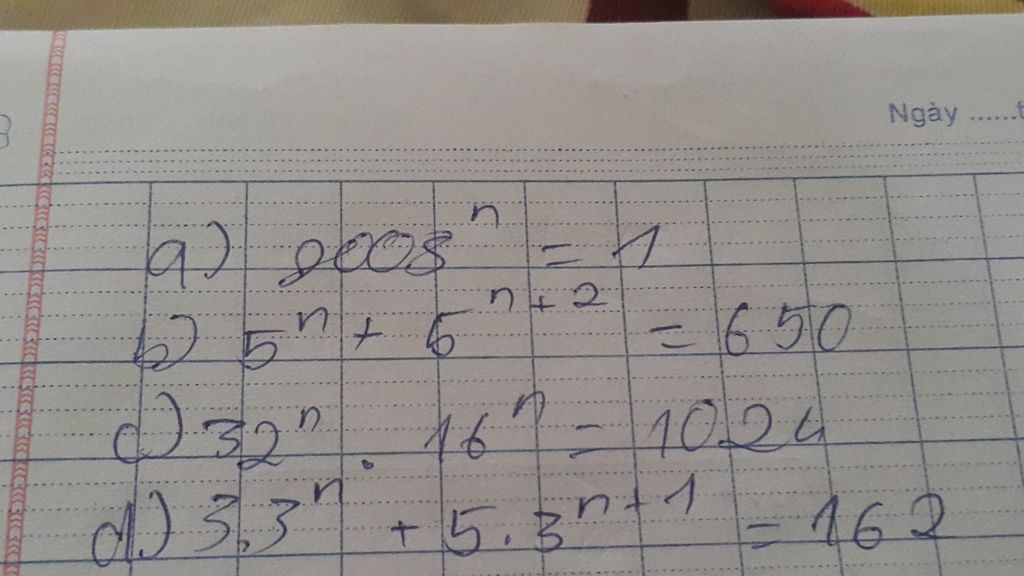 Ngày ......t
a) 2008ⁿ = 1
b) 5ⁿ + 5ⁿ⁺² = 650
c) 32ⁿ . 16ⁿ = 1024
d) 3.3ⁿ + 5.3ⁿ⁺¹ = 162